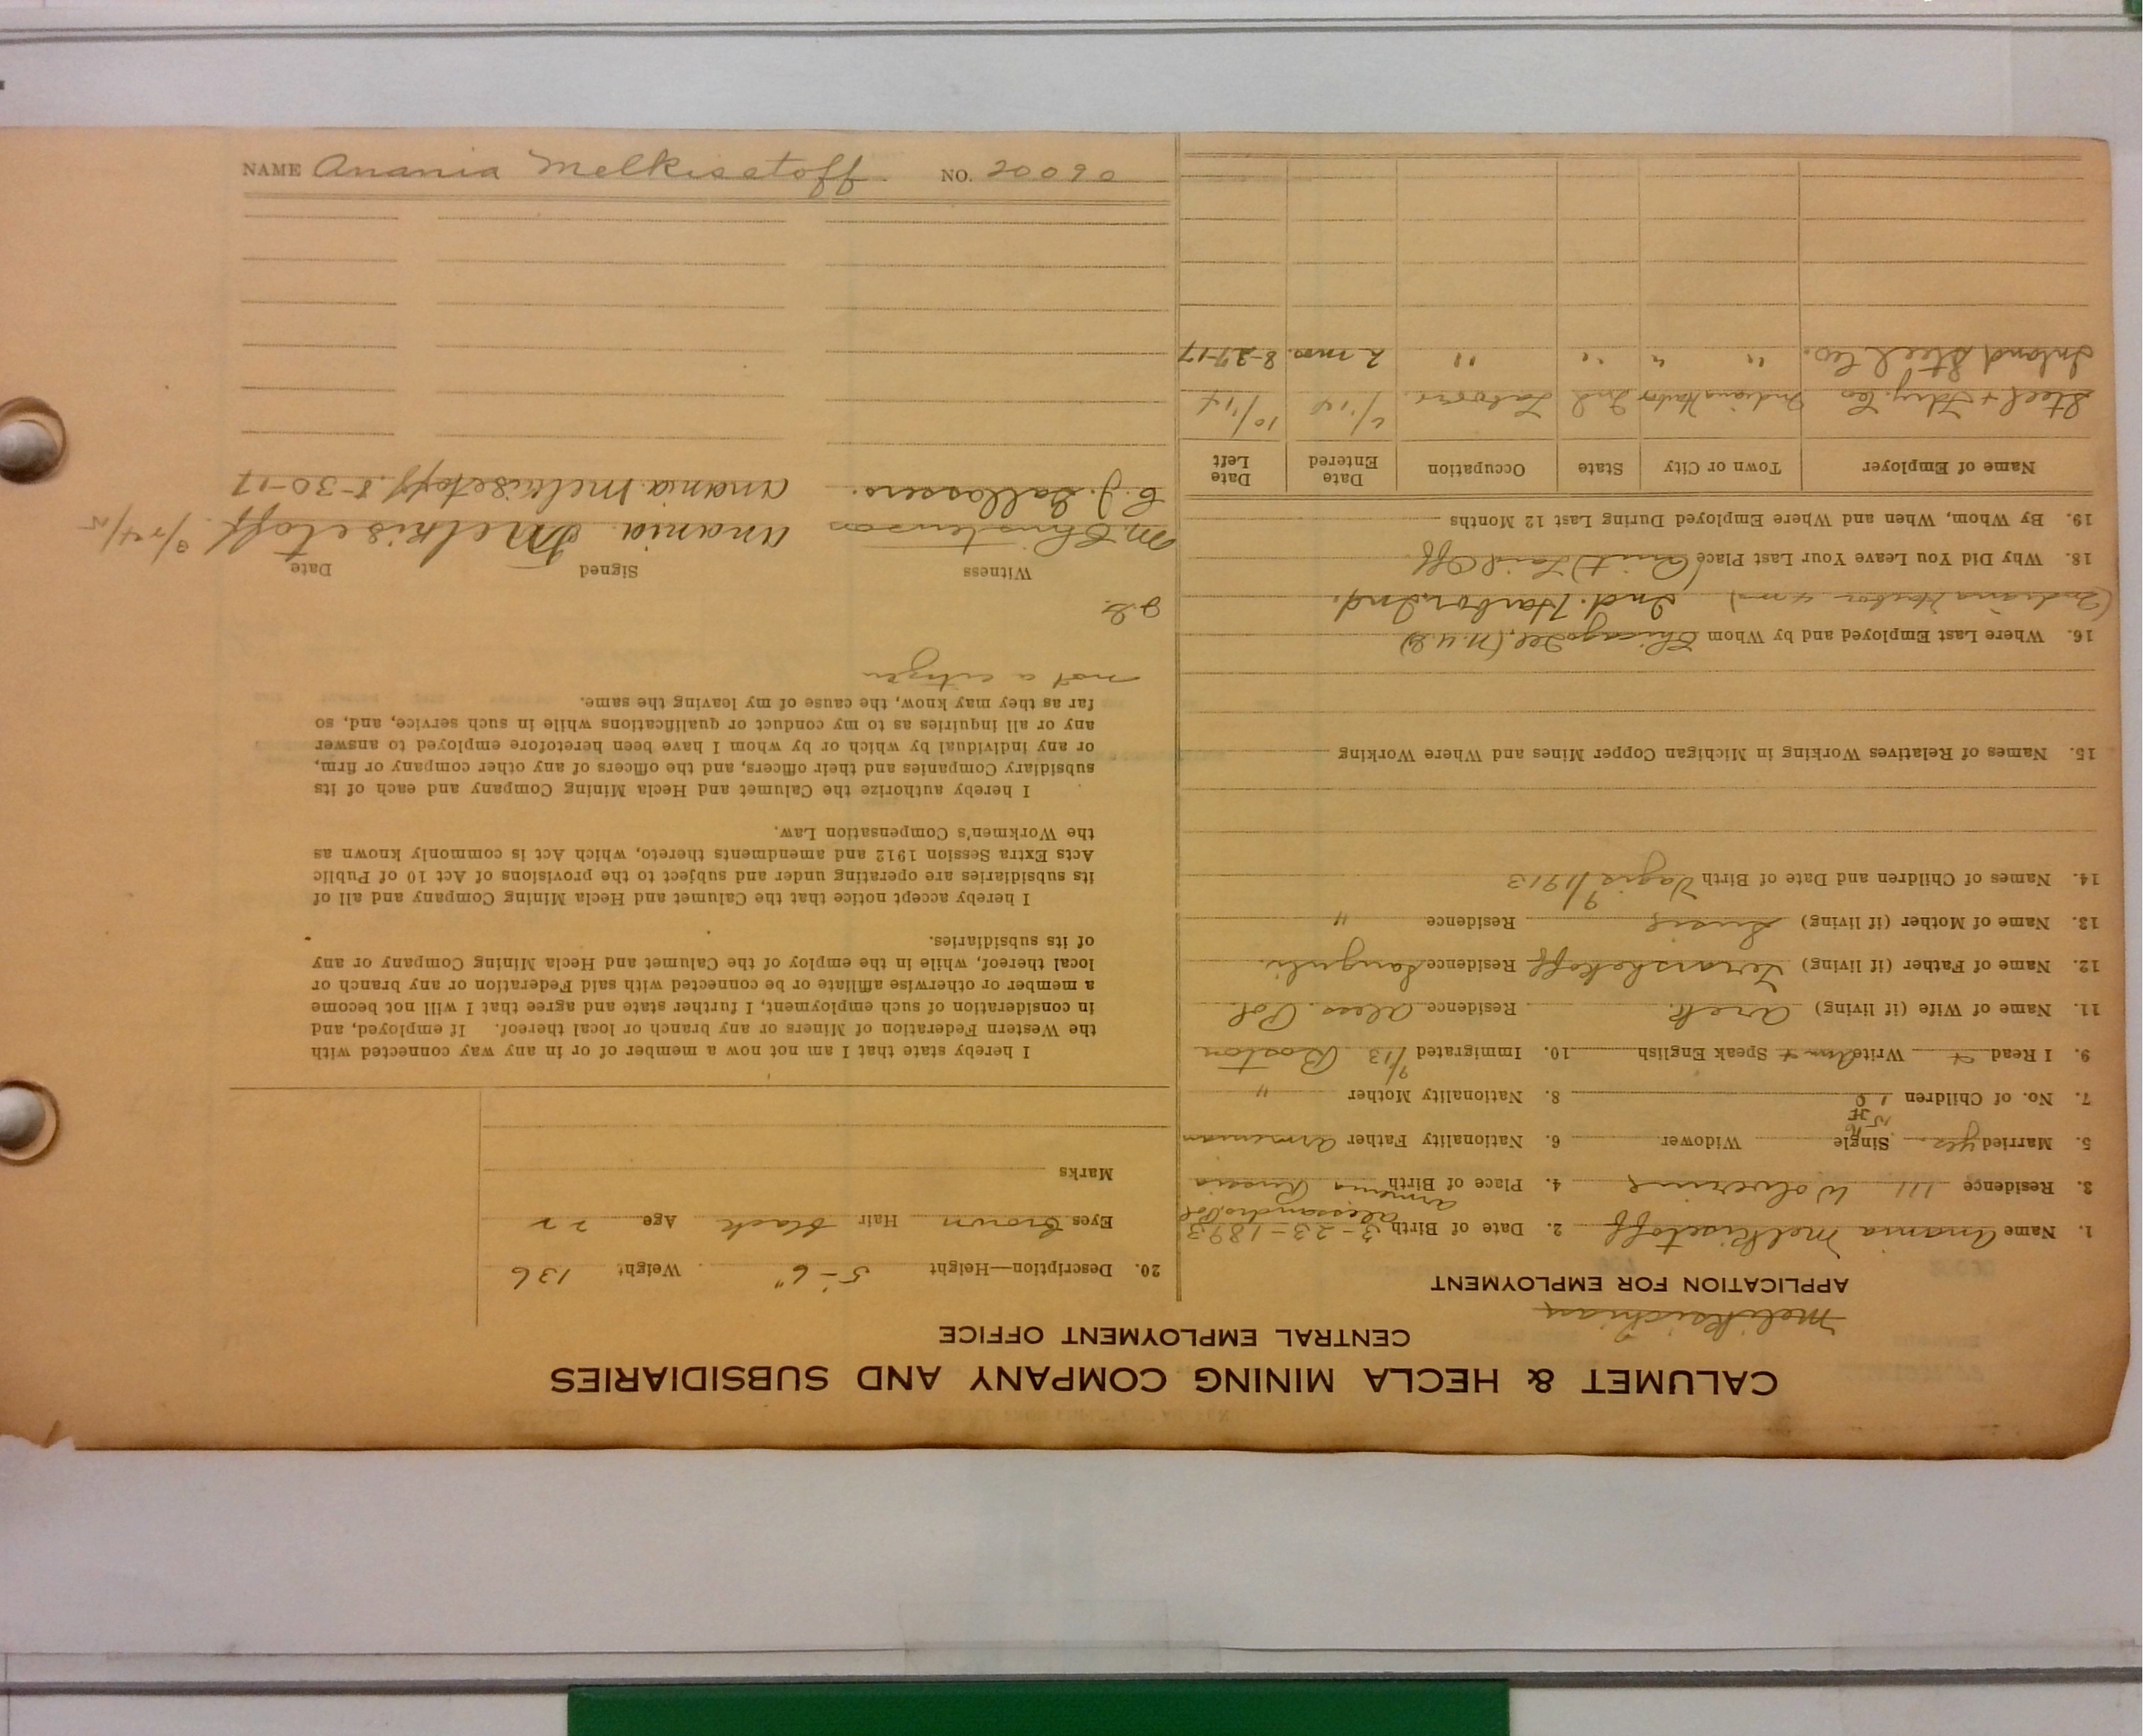 CALUMET & HECLA MINING COMPANY AND SUBSIDIARIES
CENTRAL EMPLOYMENT OFFICE
APPLICATION FOR EMPLOYMENT
1. Name Anania Melkisetoff 2. Date of Birth 3-23-1893
Alessandropol
3. Residence 111 Wolverine 4. Place of Birth Armenia Russia
5. Married yes Single Widower 6. Nationality Father Armenian
7. No. of Children 1 8. Nationality Mother "
9. I Read + Write Arm + Speak English 10. Immigrated 9/13 Boston
11. Name of Wife (if living) Aret. Residence Aless. Pol.
12. Name of Father (if living) Residence
13. Name of Mother (if living) Residence "
14. Names of Children and Date of Birth 9/1913
15. Names of Relatives Working in Michigan Copper Mines and Where Working
16. Where Last Employed and by Whom Chicago Ill
(Indiana Harbor 4 mo) Ind. Harbor, Ind.
18. Why Did You Leave Your Last Place (Quit) Laid Off
19. By Whom, When and Where Employed During Last 12 Months
Name of Employer Town or City State Occupation Date Entered Date Left
Steel + Fdry. Co Indiana Harbor Ind Laborer 6/14 10/14
Inland Steel Co. " " " " 2 mos. 8-27-17
20. Description—Height 5-6" Weight 136
Eyes Brown Hair black Age 22
Marks
I hereby state that I am not now a member of or in any way connected with
the Western Federation of Miners or any branch or local thereof. If employed, and
in consideration of such employment, I further state and agree that I will not become
a member or otherwise affiliate or be connected with said Federation or any branch or
local thereof, while in the employ of the Calumet and Hecla Mining Company or any
of its subsidiaries.
I hereby accept notice that the Calumet and Hecla Mining Company and all of
its subsidiaries are operating under and subject to the provisions of Act 10 of Public
Acts Extra Session 1912 and amendments thereto, which Act is commonly known as
the Workmen's Compensation Law.
I hereby authorize the Calumet and Hecla Mining Company and each of its
subsidiary Companies and their officers, and the officers of any other company or firm,
or any individual by which or by whom I have been heretofore employed to answer
any or all inquiries as to my conduct or qualifications while in such service, and, so
far as they may know, the cause of my leaving the same.
not a citizen
Witness Signed Date
M Christenson Anania Melkisetoff
Anania Melkisetoff 8-30-17
NAME Anania Melkisetoff NO. 20090